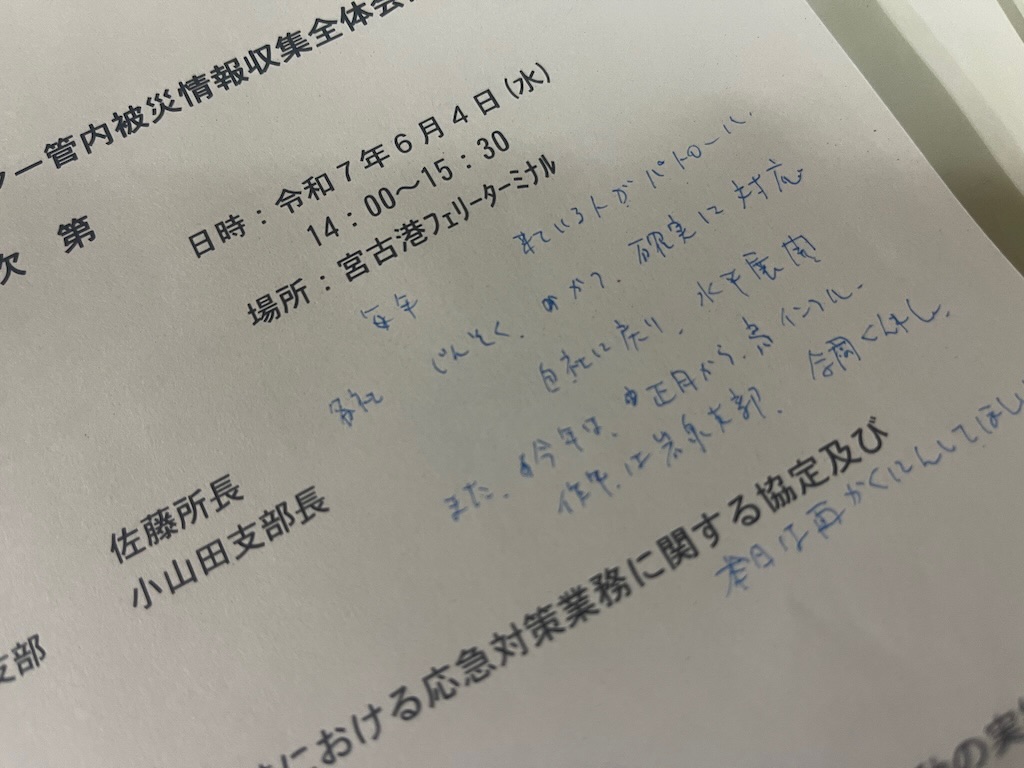 ー管内被災情報収集全体会
次 第
日時：令和７年６月４日（水）
１４：００～１５：３０
場所：宮古港フェリーターミナル
毎年 来ている人がパトロール.
各社 じんそく、めかつ、確実に対応
自社に戻り、水平展開
また、今年は、正月から、鳥インフル、
昨年は岩泉支部、合同くんれん、
本日は再かくにんしてほし
佐藤所長
小山田支部長
支部
における応急対策業務に関する協定及び
の実